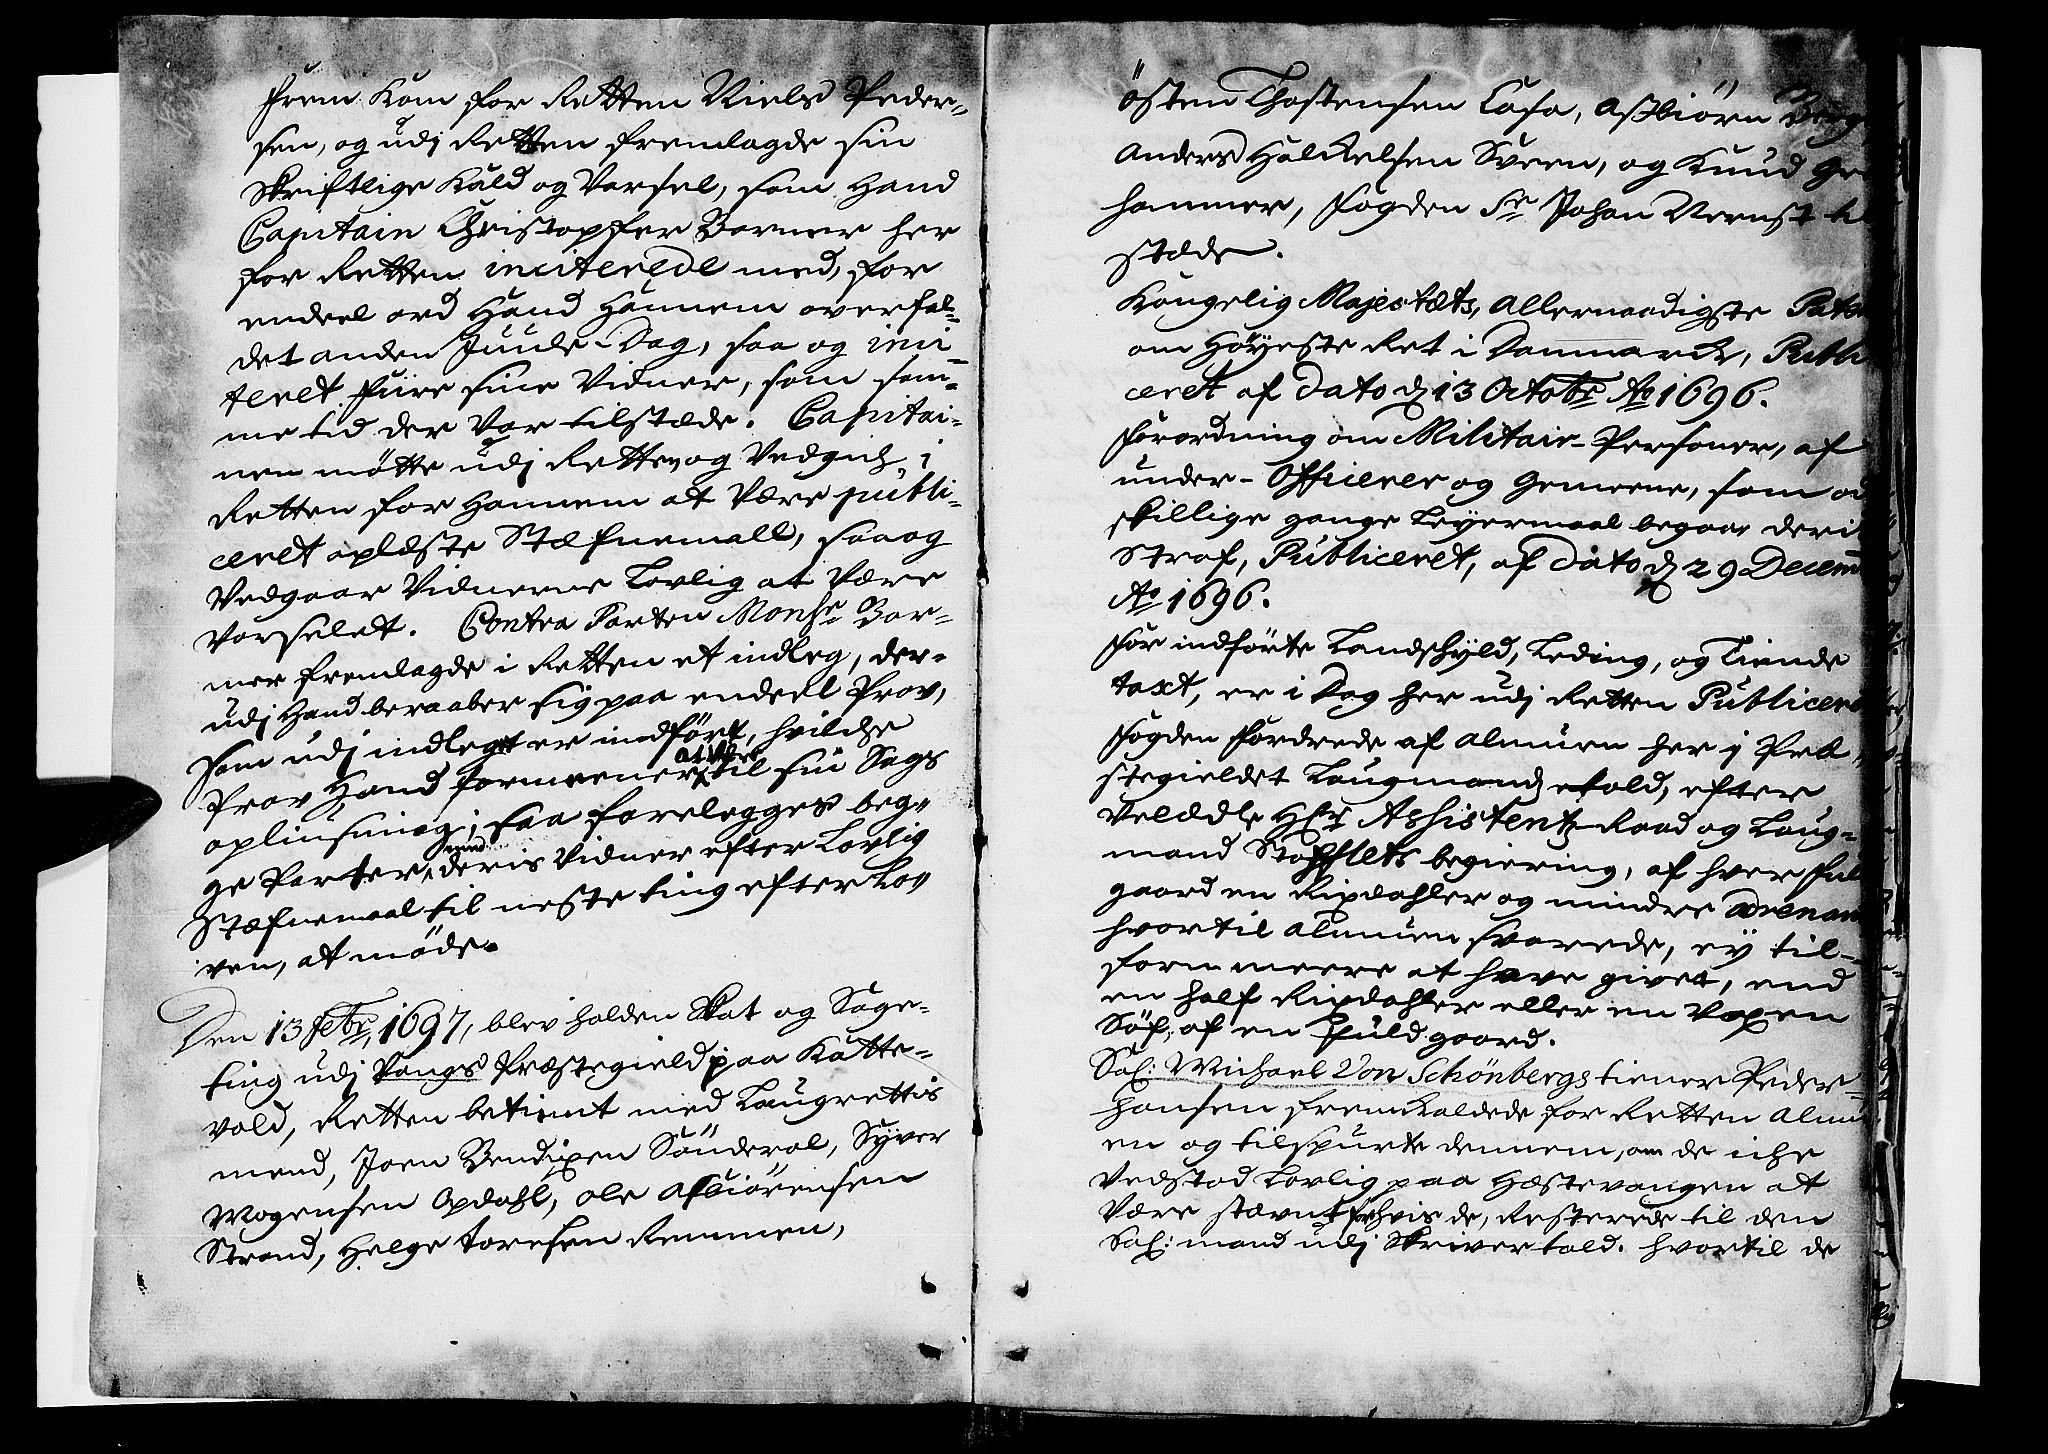 Frem Kom for Retten Niels Peder-
sen, og udj Retten fremlagde sin
Skriftlige Kald og Varsel, som Hand
Capitain Christopffer Barner her
for Retten inciterede med, for
endeel ord Hand Hannem overfal-
det anden Juule-Dag, saa og inci-
teret fiire sine Vidner, som sam-
me tid der Var tilstæde. Capitai-
nen møtte udj Retten og Vedgich i
Retten for Hannem at Være publi-
ceret oplæste Stæfnemall, saa og
Vedgaar Vidnerne Lovlig at Være
Varselet. Contra Parten Monsr Bar-
ner fremlagde i Retten et indleg, der-
udj Hand beraaber sig paa endeel Prov,
som udj indleget er indført, hvilche
Prov Hand formeener at Være til sin Sags
opliusning; saa forelegges beg-
ge Parter med deris Vidner efter Lovlig
Stæfnemaal til neste ting efter Lo-
ven, at møde.
Den 13 Febr, 1697, blev holden Skat og Sage-
ting udj Vangs Præstegield paa Katte-
vold, Retten betient med Laugrettis
mend, Joen Bendixen Sønderol, Syver
Mogensen Opdahl, Ole Asbiørensen
Strand, Helge toresen Remmen,
Østen Thostensen Casa, Asbiørn Berge
Anders Halckelsen Sveen, og Knud
hammer, Fogden Sr Johan Vernst til
stæde.
Kongelig Majestæts, Allernaadigste
om Høyeste Ret i Danmarck, Publi
ceret af Dato d 13 Octobr Ao 1696.
Forordning om Militair-Personer, af
under-Officerer og Gemeene, som ad
skillige gange Leyermaal begaar deris
Straf, Publiceret, af Dato d 29 Decem
Ao 1696.
For indførte Landschyld, Leding, og Tiende
taxt, er i Dag her udj Retten Publiceret
Fogden fordrede af Almuen her i Præ-
stegieldet Laugmands told, efter
Velædle Hr Assistentz Raad og Laug-
mand Stofflets begiering, af hver ful
gaard en Rixdahler og mindre advenant
hvortil Almuen svarede, ey til-
form meere at have givet, end
en half Rixdahler eller en Voxen
Søf, af en Fuld gaard.
Sal: Michael Von Schönbergs tiener Peder
Hansen fremkaldede for Retten Almu
en og tilspurte dennem, om de iche
Vedstod Lovlig paa Hæstevangen at
Være stævnt for hvis de, Resterede til den
Sal: mand udj Skriver told. hvortil de